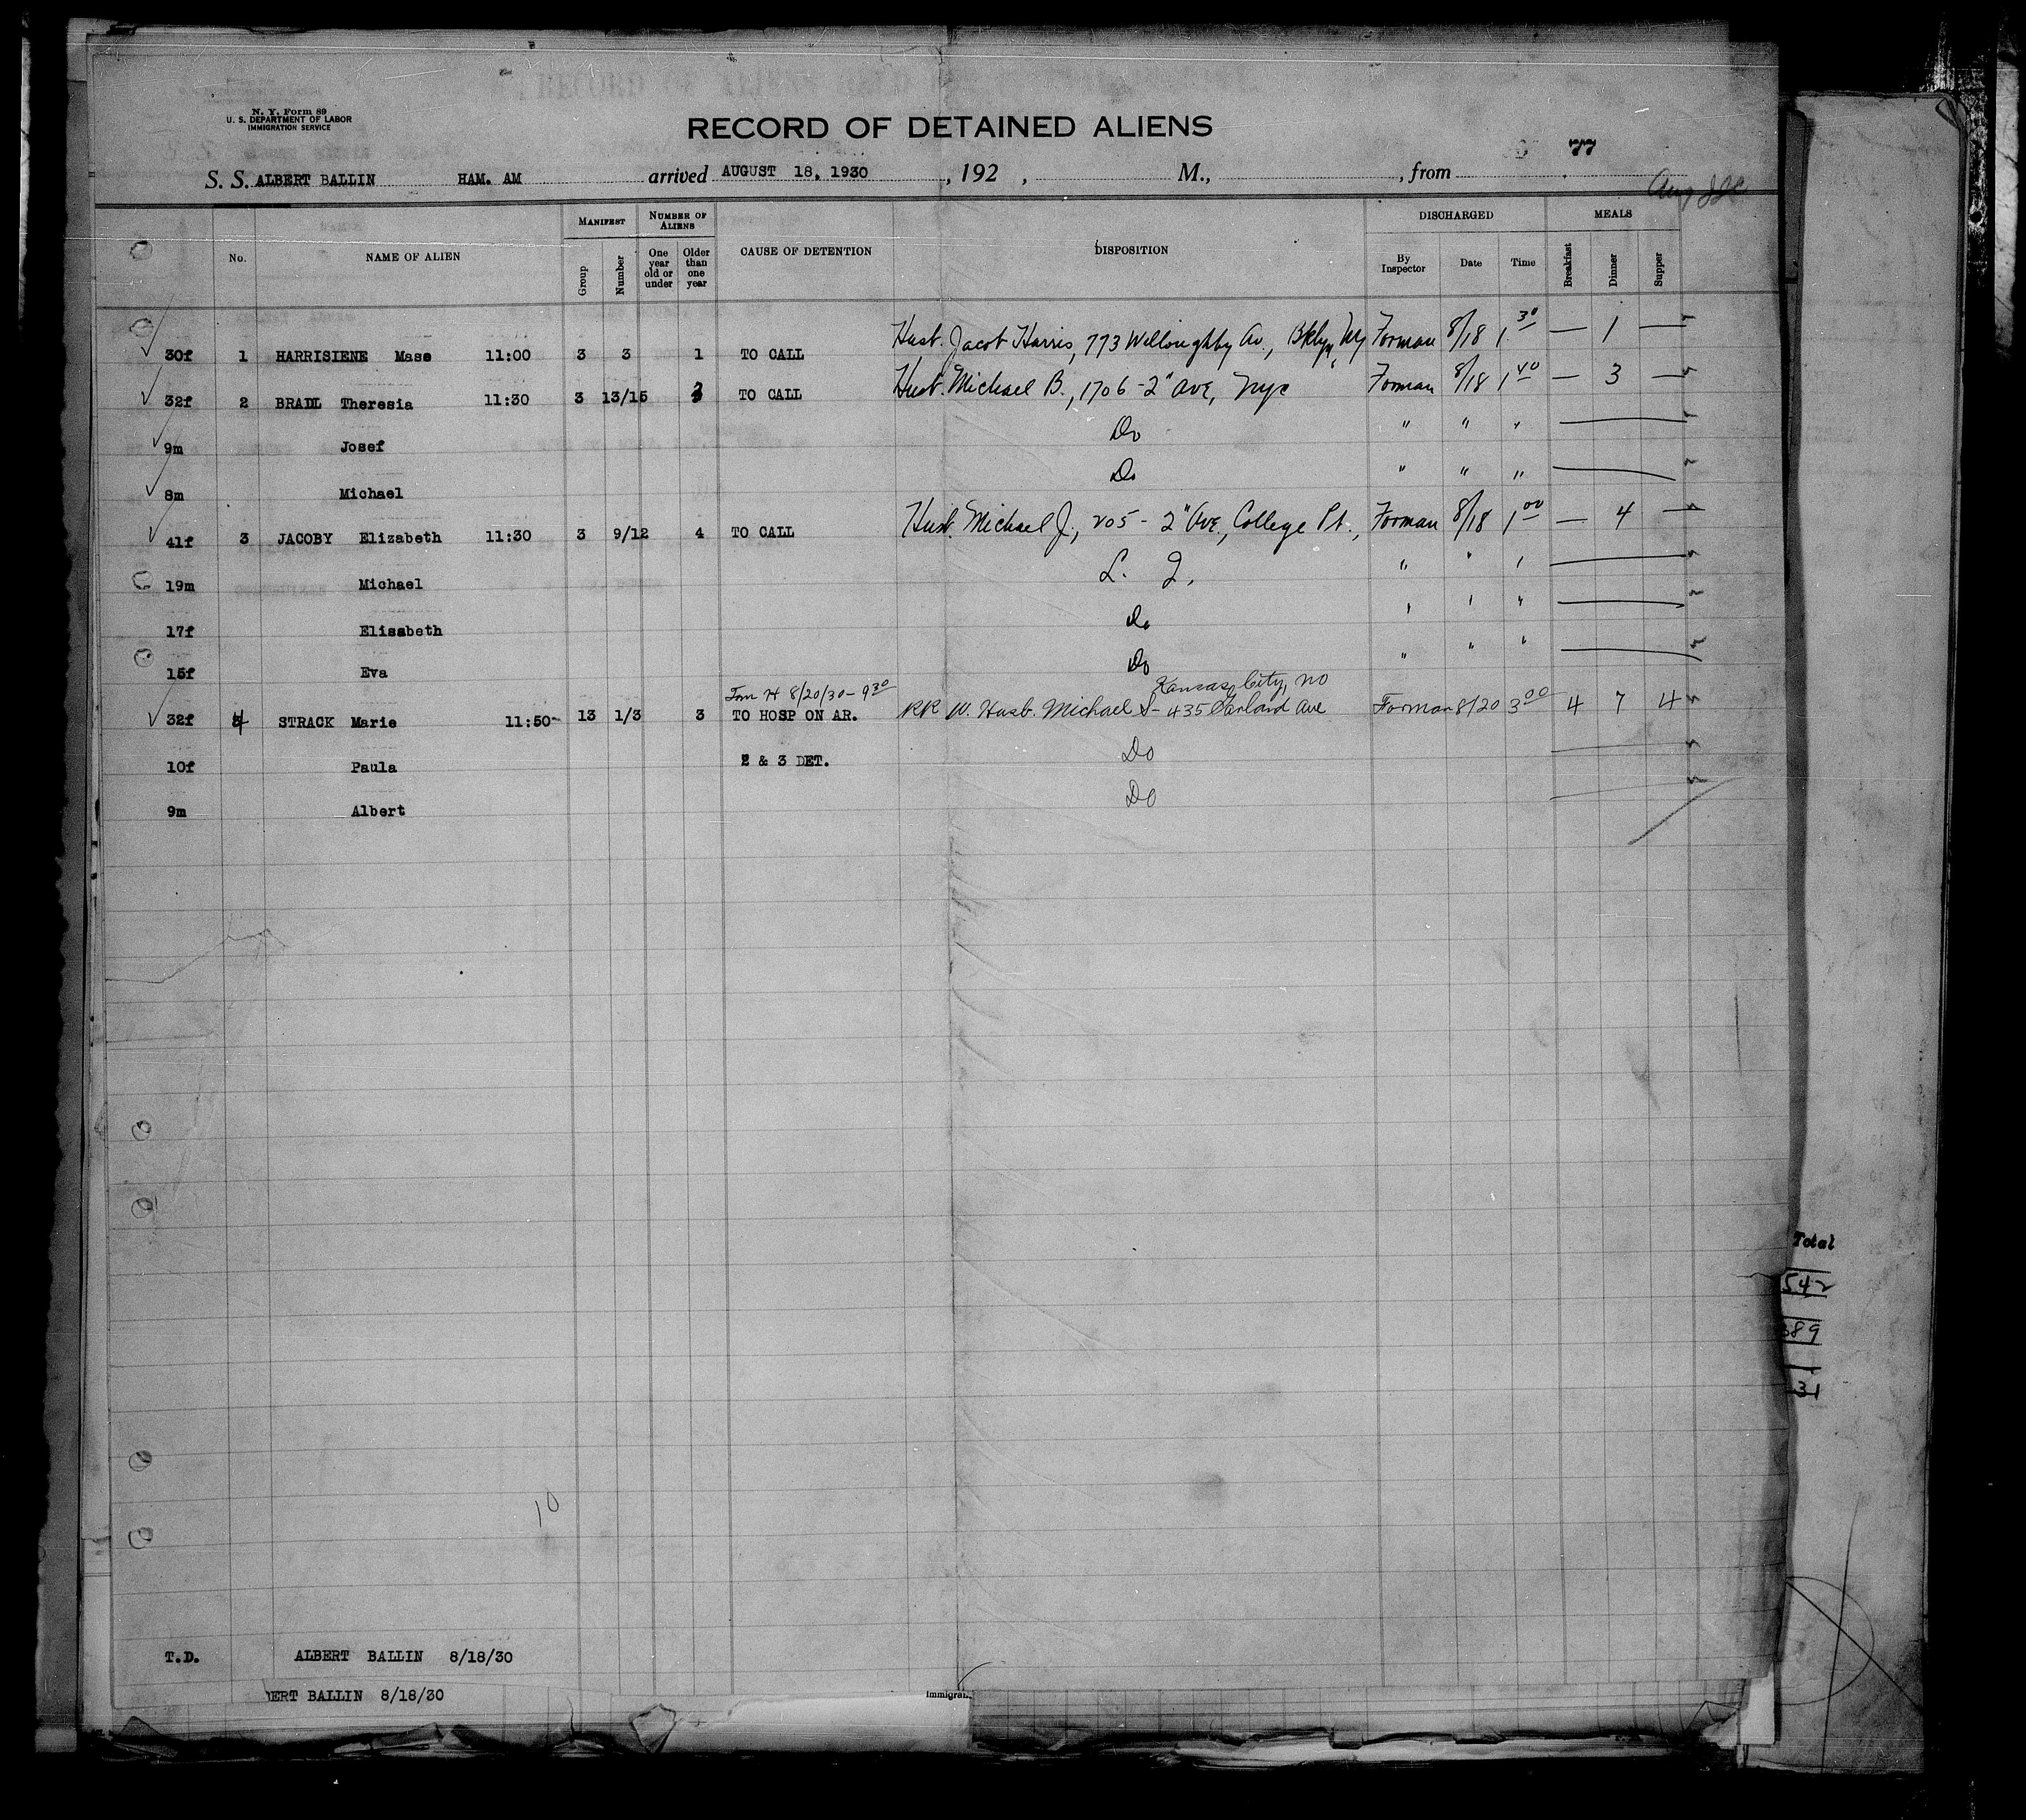 N. Y. Form 89
U. S. DEPARTMENT OF LABOR
IMMIGRATION SERVICE
RECORD OF DETAINED ALIENS
77
S. S. ALBERT BALLIN HAM. AM arrived AUGUST 18, 1930, 192 , M., , from
No. NAME OF ALIEN MANIFEST NUMBER OF ALIENS CAUSE OF DETENTION DISPOSITION DISCHARGED MEALS
Group Number One year old or under Older than one year By Inspector Date Time Breakfast Dinner Supper
30f 1 HARRISIENE Mase 11:00 3 3 1 TO CALL Husb. Jacob Harris, 773 Willoughby Av., Bklyn, NY Forman 8/18 1 30 — 1 —
32f 2 BRADL Theresia 11:30 3 13/15 3 TO CALL Husb. Michael B., 1706 - 2" Ave, NYC Forman 8/18 1 40 — 3 —
9m Josef Do " " "
8m Michael Do " " "
41f 3 JACOBY Elizabeth 11:30 3 9/12 4 TO CALL Husb. Michael J., 205 - 2" Ave., College Pt., Forman 8/18 1 00 — 4 —
19m Michael L. I. " " "
17f Elisabeth Do " " "
15f Eva Do " " "
8/20/30 - 9 30 Kansas City, MO
32f 4 STRACK Marie 11:50- 13 1/3 3 TO HOSP ON AR. RR W. Husb. Michael S - 435 Garland Ave Forman 8/20 3 00 4 7 4
10f Paula 2 & 3 DET. Do
9m Albert Do
10
Total
542
389
31
T.D. ALBERT BALLIN 8/18/30
BERT BALLIN 8/18/30
Immigran